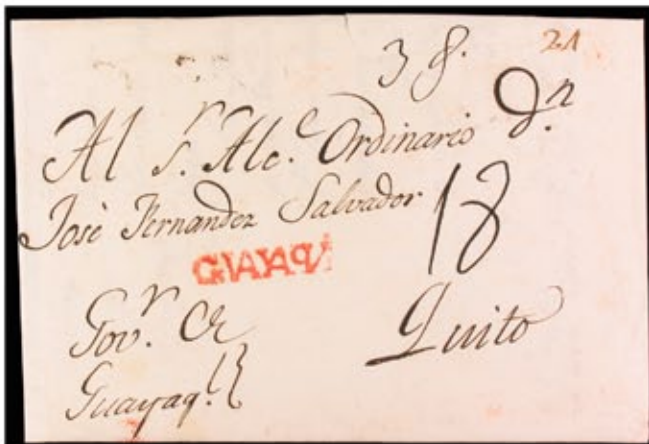 38.
21
Al Sr. Alce. Ordinario Dn.
Josè Fernandez Salvador
18
GVAYAQVI
Govr. de
Guayaql.
Quito